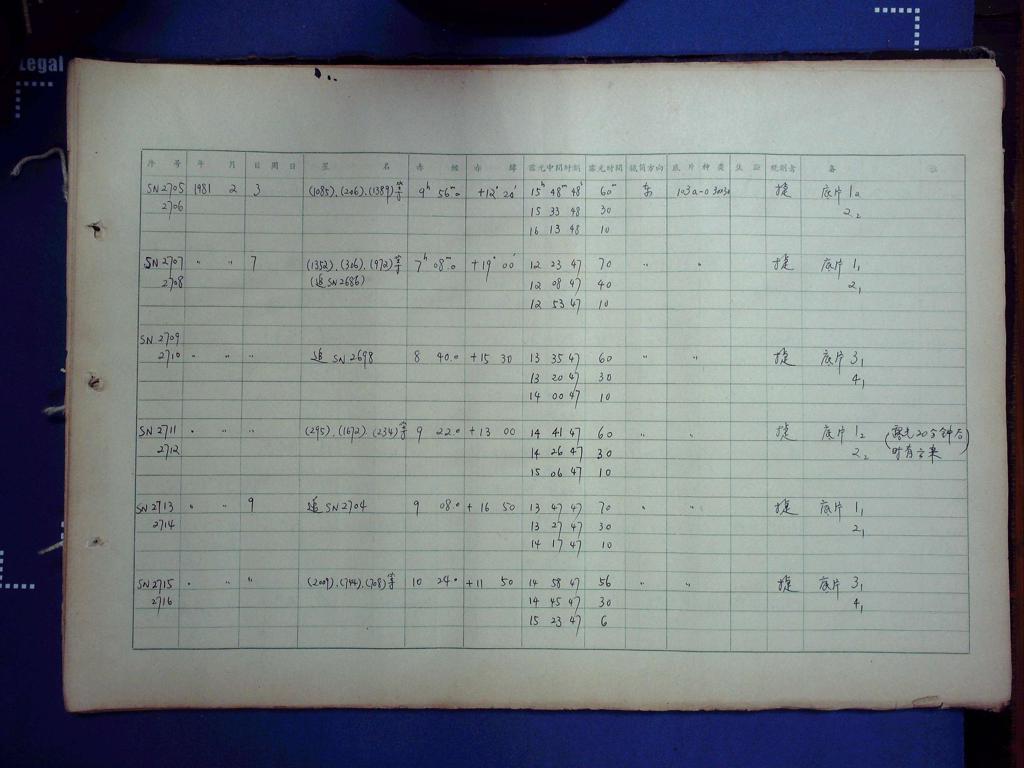 Legal
序 号 年 月 日 周 日 星 名 赤 经 赤 纬 露光中间时刻 露光时间 镜筒方向 底 片 种 类 生 观测者 备 注
SN2705 1981 2 3 (1085).(206).(1389)等 9h 56m.0 +12° 20′ 15h 48m 48s 60m 东 103a-O 捷 底片 1₂
2706 15 33 48 30 2₂
16 13 48 10
SN2707 " " 7 (1352).(306).(972)等 7h 08m.0 +19° 00′ 12 23 47 70 " " 捷 底片 1₁
2708 (追SN2686) 12 08 47 40 2₁
12 53 47 10
SN2709
2710 " " " 追 SN2698 8 40.0 +15 30 13 35 47 60 " " 捷 底片 3₁
13 20 47 30 4₁
14 00 47 10
SN2711 " " " (295).(1672).(234)等 9 22.0 +13 00 14 41 47 60 " " 捷 底片 1₂ (露光20分钟后
2712 14 26 47 30 2₂ 时有云来)
15 06 47 10
SN2713 " " 9 追 SN2704 9 08.0 +16 50 13 47 47 70 " " 捷 底片 1₁
2714 13 27 47 30 2₁
14 17 47 10
SN2715 " " " (2009).(744).(708)等 10 24.0 +11 50 14 58 47 56 " " 捷 底片 3₁
2716 14 45 47 30 4₁
15 23 47 6